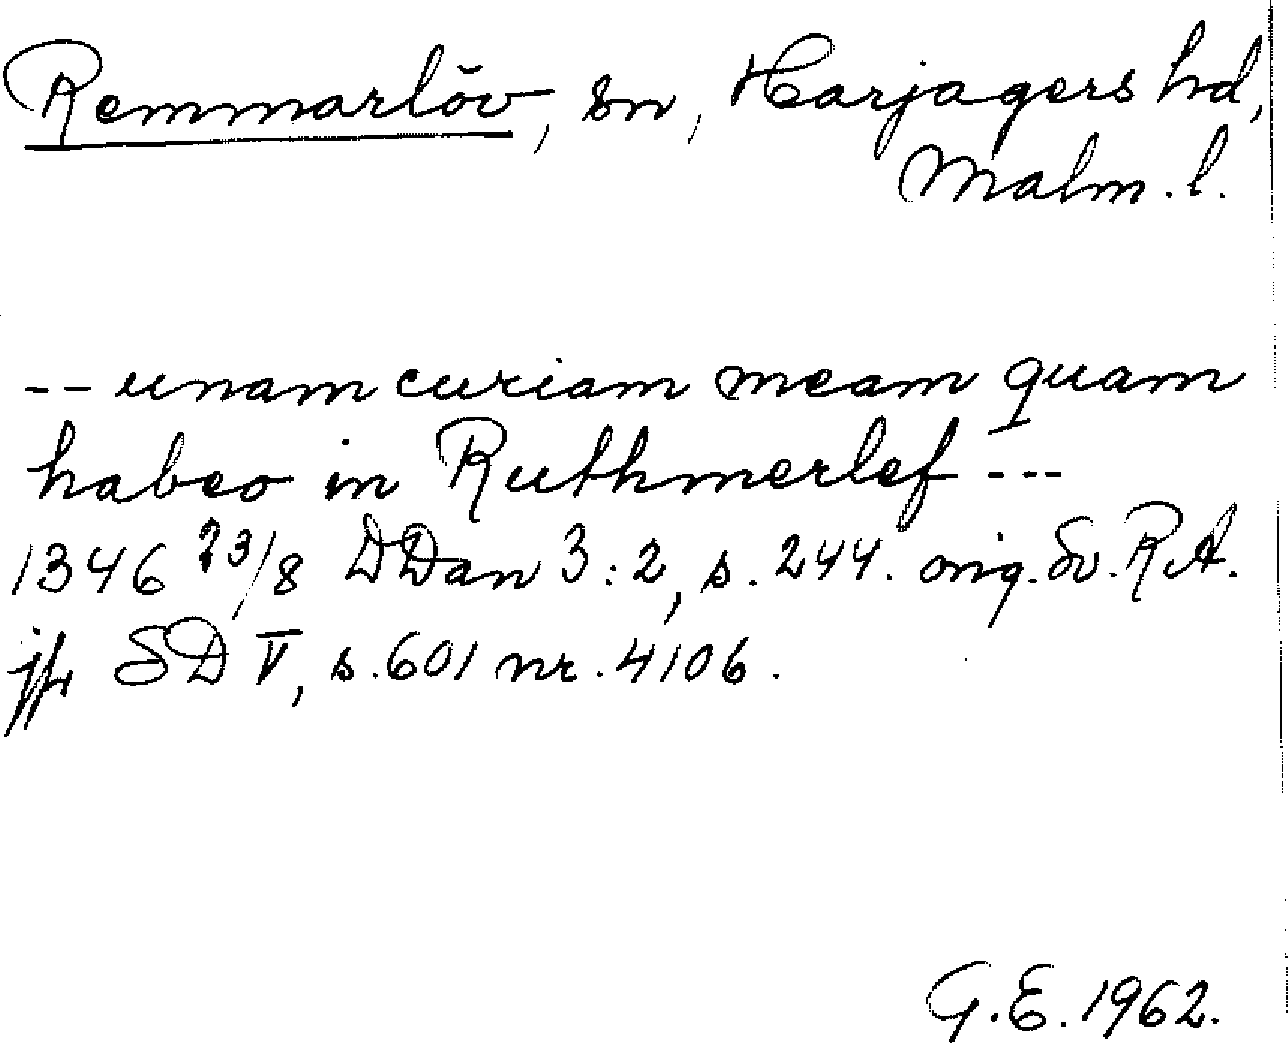 Remmarlöv, sn, Harjagers hd,
Malm. l.
-- unam curiam meam quam
habeo in Ruthmerlef ---
1346 23/8 DDan 3:2, s. 244. orig. Sv. R.A.
jfr SD V, s. 601 nr. 4106.
G.E. 1962.